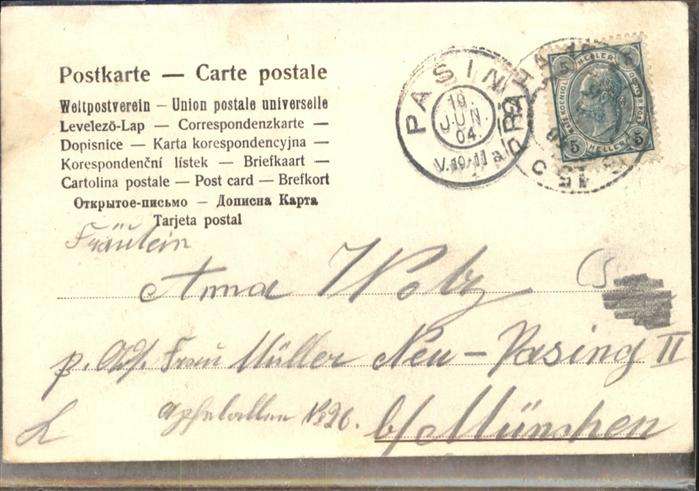 Postkarte — Carte postale
Weltpostverein – Union postale universelle
Levelező-Lap — Correspondenzkarte —
Dopisnice — Karta korespondencyjna —
Korespondenční lístek — Briefkaart —
Cartolina postale — Post card — Brefkort
Открытое-письмо — Дописна Карта
Tarjeta postal
PASING
19.
JUN.
04.
5 HELLER 5
Fräulein
Anna Wolz
p. Adr. Frau Müller Neu-Pasing II
b/München